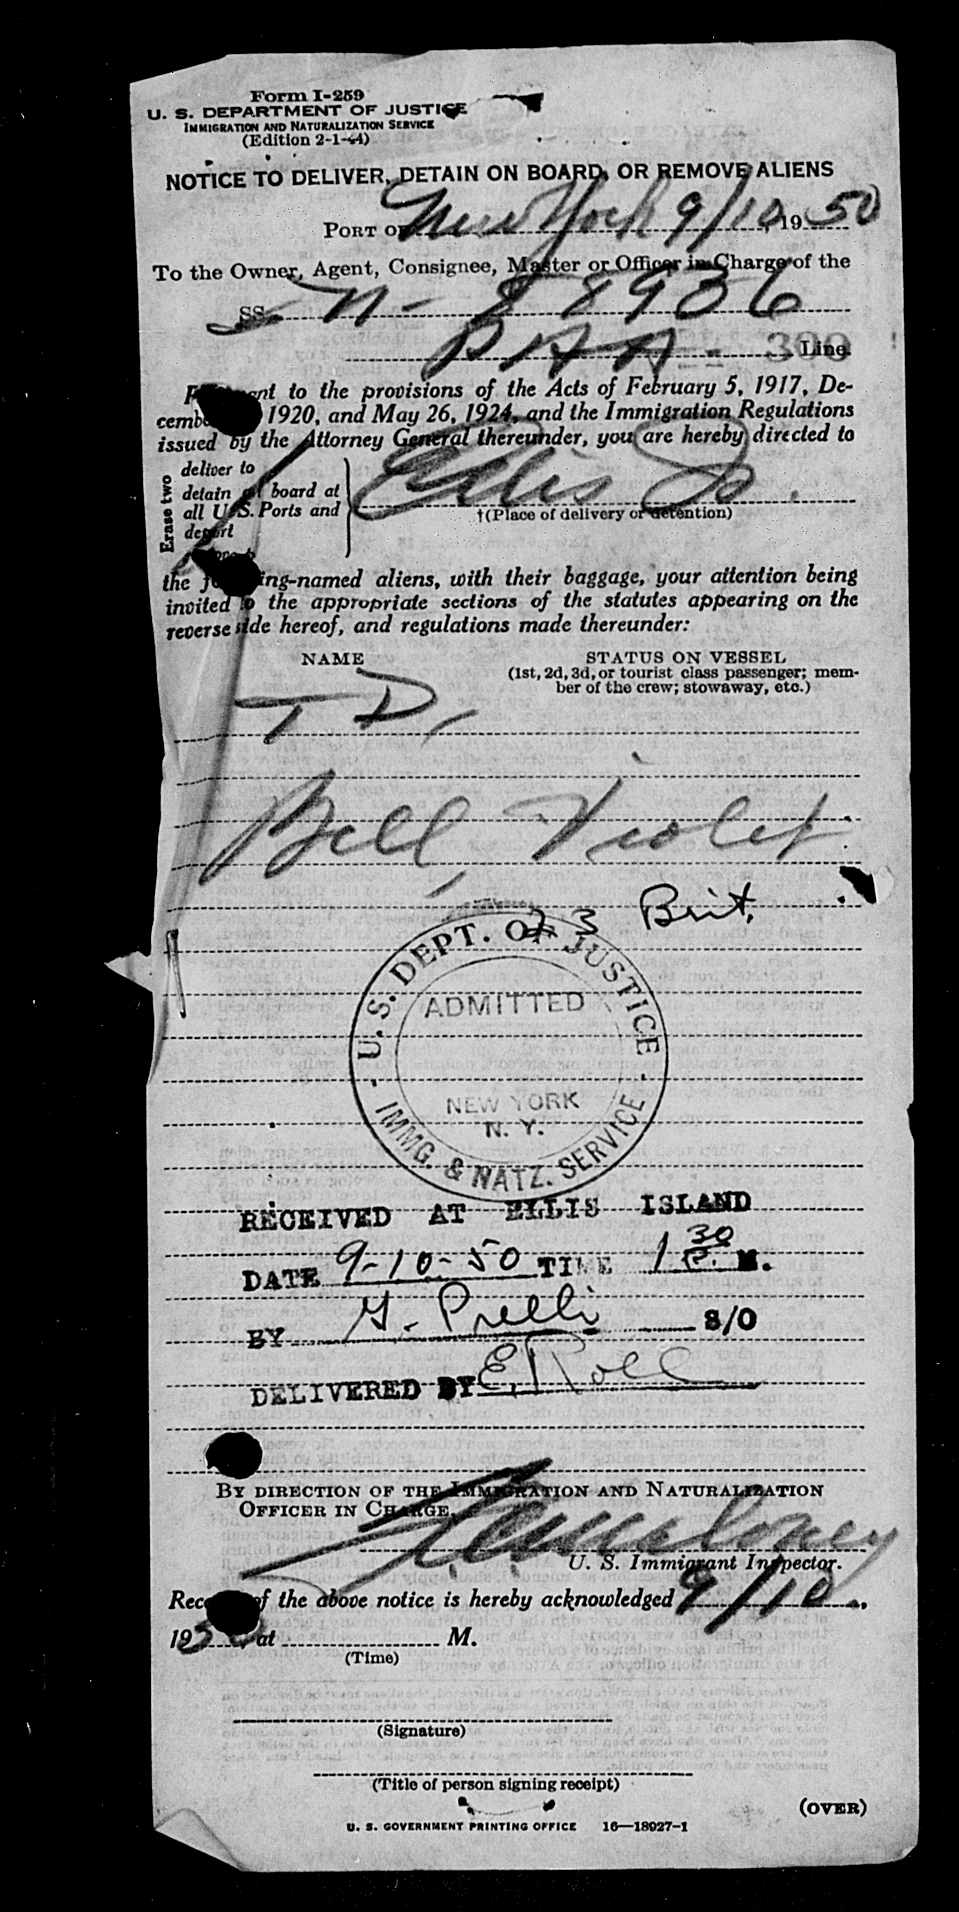 Form I-259
U. S. DEPARTMENT OF JUSTICE
IMMIGRATION AND NATURALIZATION SERVICE
(Edition 2-1-44)
NOTICE TO DELIVER, DETAIN ON BOARD, OR REMOVE ALIENS
PORT OF New York 9/10, 1950
To the Owner, Agent, Consignee, Master or Officer in Charge of the
SS N-88936
PAA 300 Line
to the provisions of the Acts of February 5, 1917, De-
1920, and May 26, 1924, and the Immigration Regulations
issued by the Attorney General thereunder, you are hereby directed to
Erase two
deliver to
detain on board at
all U. S. Ports and
deport
Ellis Is.
†(Place of delivery or detention)
the following-named aliens, with their baggage, your attention being
invited to the appropriate sections of the statutes appearing on the
reverse side hereof, and regulations made thereunder:
NAME
STATUS ON VESSEL
(1st, 2d, 3d, or tourist class passenger; mem-
ber of the crew; stowaway, etc.)
T D,
Bell, Violet
23 Brit.
U. S. DEPT. OF JUSTICE
ADMITTED
NEW YORK
N. Y.
IMMG. & NATZ. SERVICE
RECEIVED AT ELLIS ISLAND
DATE 9-10-50 TIME 1 30 P. M.
BY G. Prelli S/O
DELIVERED BY E. Roll
BY DIRECTION OF THE IMMIGRATION AND NATURALIZATION
OFFICER IN CHARGE,
Maloney
U. S. Immigrant Inspector.
of the above notice is hereby acknowledged 9/10,
1950 at M.
(Time)
(Signature)
(Title of person signing receipt)
(OVER)
U. S. GOVERNMENT PRINTING OFFICE 16—18927-1